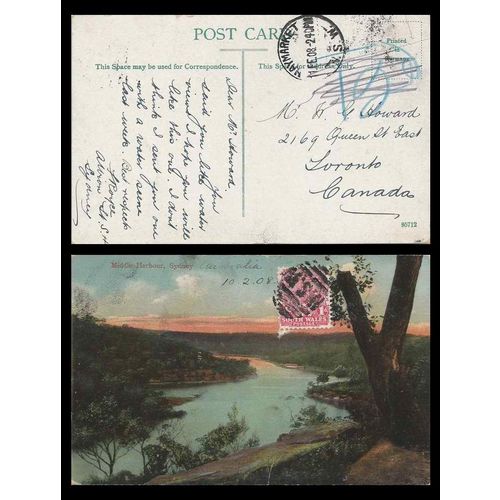 POST CARD
This Space may be used for Correspondence.
This Space for Address Only.
Printed
in
Germany
HAYMARKET
11 FE 08 · 2 40 PM
N.S.W.
Dear Mr Howard,
You
said you like water
views I hope you will
like this one I don't
think I sent you one
with a water scene
last week.
Sydney
Mr. H. G. Howard
2169 Queen St East
Toronto
Canada
95712
Middle Harbour, Sydney Australia
10.2.08
SOUTH WALES